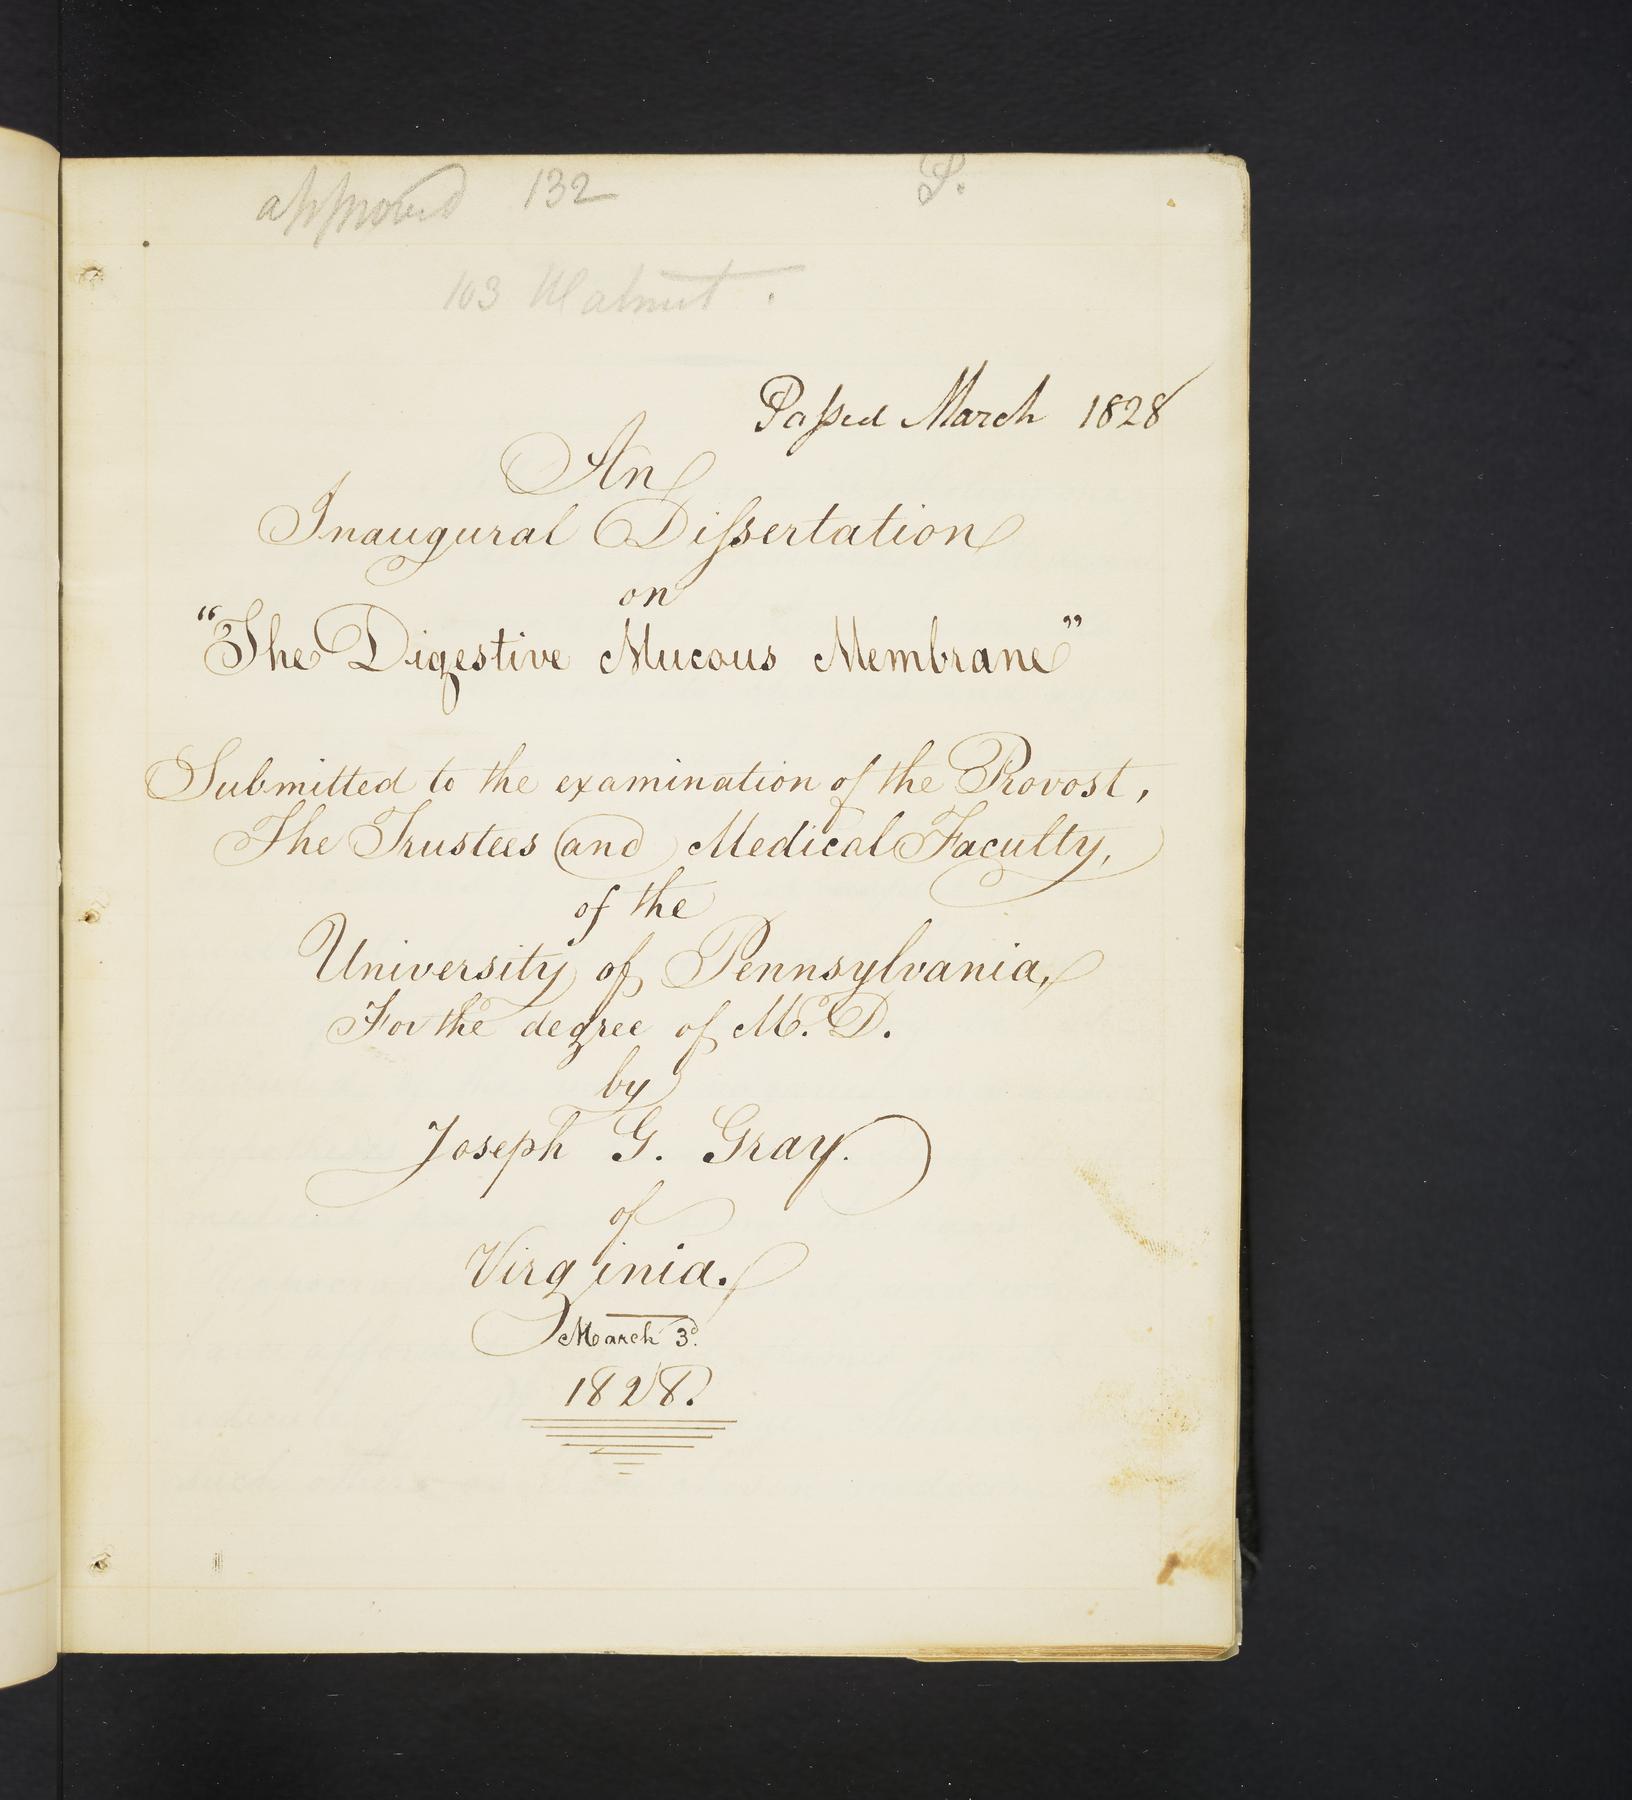 approved 132 P.
103 Walnut.
Paſsed March 1828
An
Inaugural Diſsertation
on
“The Digestive Mucous Membrane”
Submitted to the examination of the Provost,
The Trustees and Medical Faculty,
of the
University of Pennsylvania,
For the degree of M.D.
by
Joseph G. Gray.
of
Virginia.
March 3d.
1828.